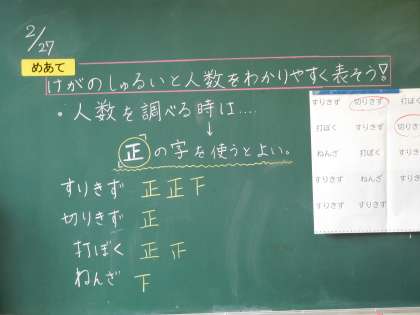 2/27
めあて
けがのしゅるいと人数をわかりやすく表そう!
・人数を調べる時は....
↓
正の字を使うとよい。
すりきず 正正下
切りきず 正
打ぼく 正正
ねんざ 下
すりきず 切りきず 打ぼく
打ぼく すりきず 切りき
ねんざ 打ぼく すりき
すりきず ねんざ すりき
すりきず すりきず